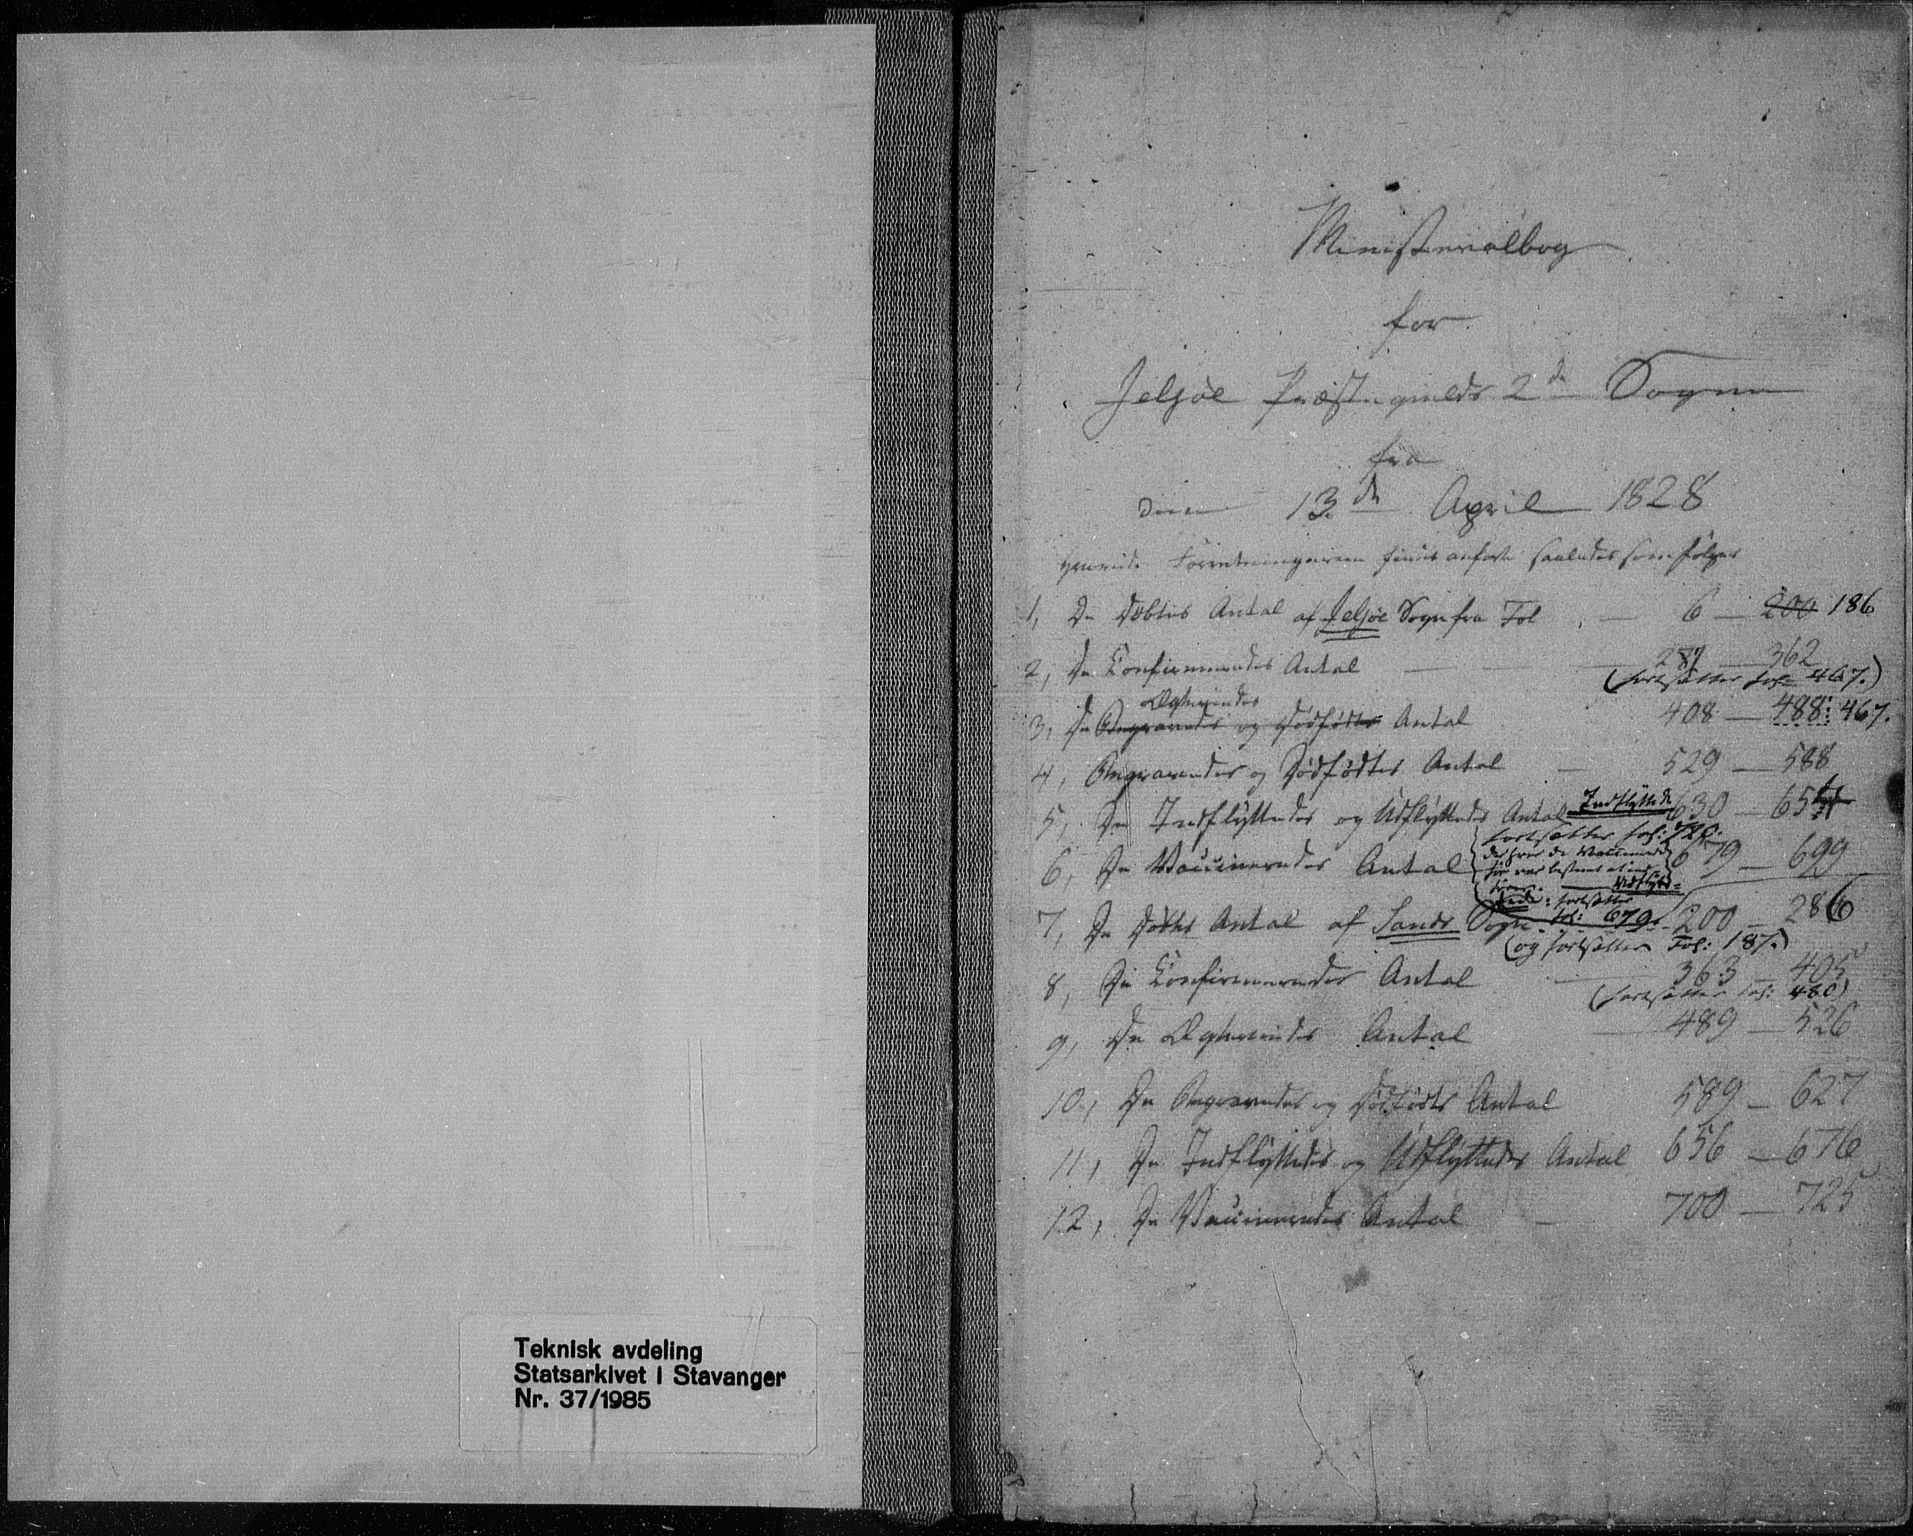 Teknisk avdeling
Statsarkivet i Stavanger
Nr. 37/1985
Ministerialbog
for
Jelsøe Præstegields 2de Sogne
fra
den 13de April 1828
Forretningerne findes anførte saaledes som følger
1, De Døbtes Antal af Jelsøe Sogn fra Fol 6 — 200 186
2, De Confirmeredes Antal 287 — 362
(fortsætter fol: 467.)
Ægteviedes
3, De Begravedes og Dødfødtes Antal 408 — 488: 467.
4, Begravedes og Dødfødtes Antal 529 — 588
5, De Indflyttedes og Udflyttedes Antal Indflyttede 630 — 655
fortsætter fol: 720.
6, De Vaccineredes Antal 679 — 699
der hvor de Vaccinerede
før var bestemt at
Udflyt=
tede: fortsætter
fol: 679.
7, De Døbtes Antal af Sands Sogn 200 — 286
(og fortsætter Fol: 187.)
8, De Confirmeredes Antal 363 — 405
(fortsætter fol: 480)
9, De Ægteviedes Antal 489 — 526
10, De Begravedes og Dødfødtes Antal 589 — 627
11, De Indflyttedes og Udflyttedes Antal 656 — 676
12, De Vaccineredes Antal 700 — 725